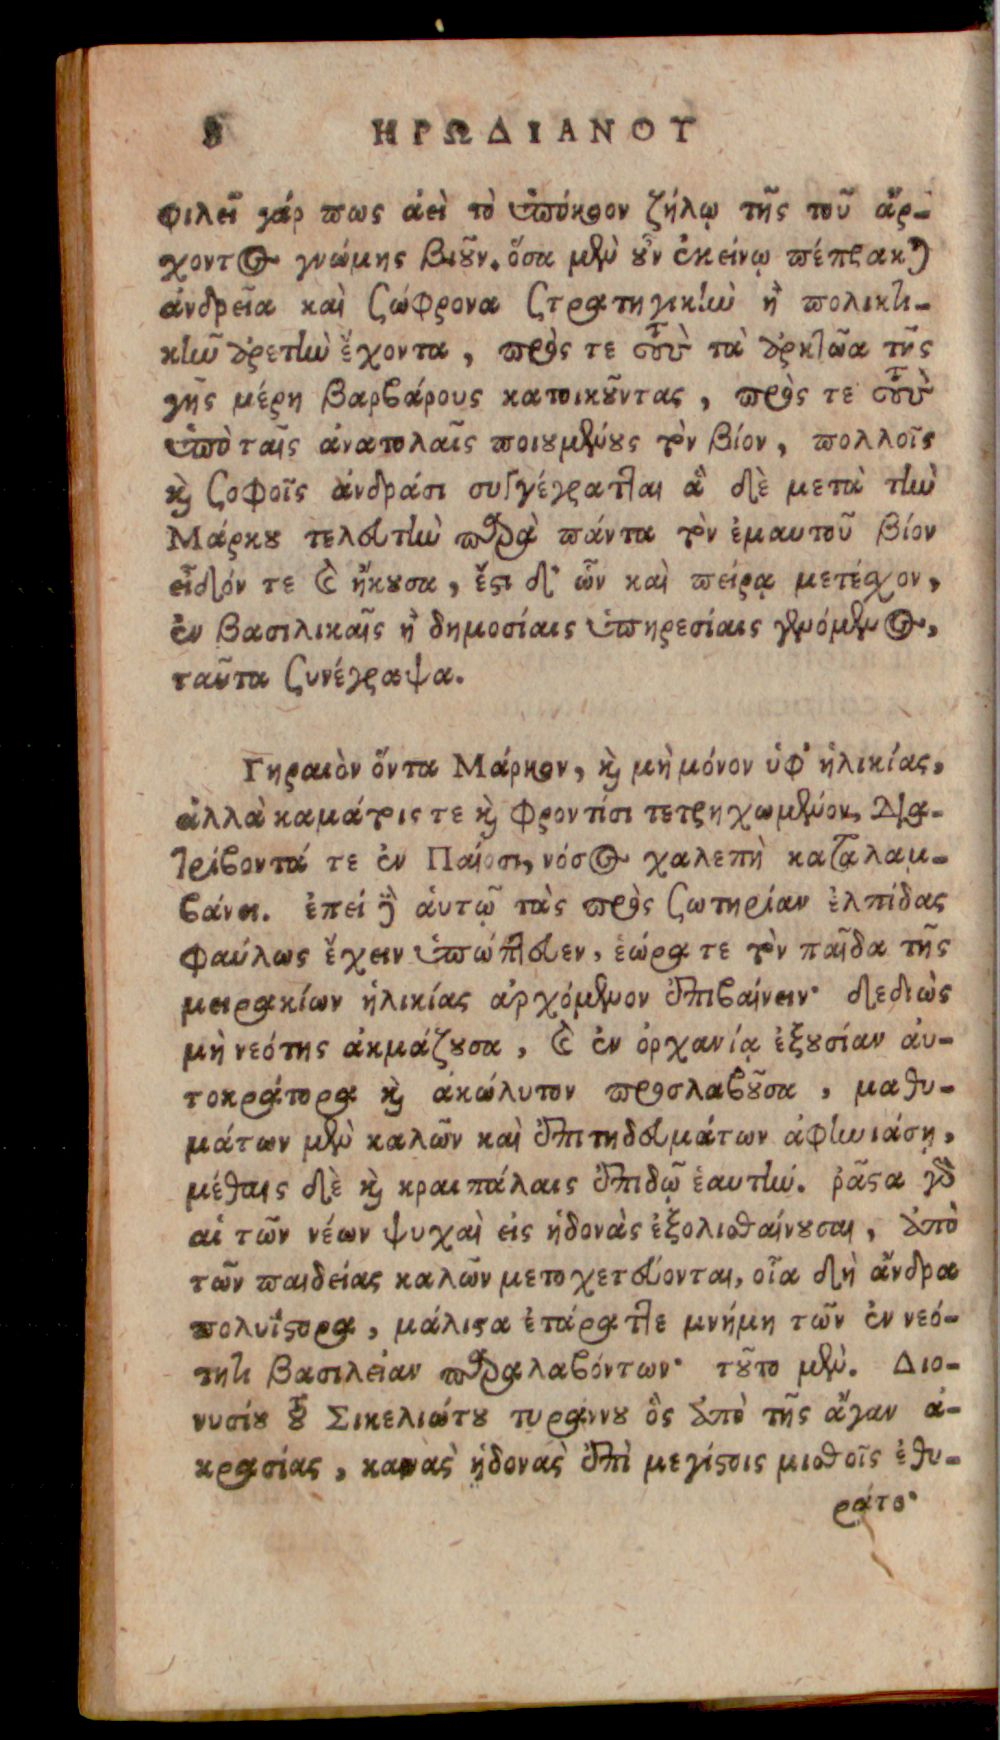 8 ΗΡΩΔΙΑΝΟΥ
φιλεῖ γάρ πως ἀεὶ τὸ ὑπήκοον ζήλῳ τῆς τοῦ ἄρ-
χοντος γνώμης βιοῦν. ὅσα μὲν οὖν ἐκείνῳ πέπρακται
ἀνδρεῖα καὶ σώφρονα στρατηγικὴν ἢ πολιτι-
κὴν ἀρετὴν ἔχοντα, πρός τε τοὺς τὰ ἀρκτῶα τῆς
γῆς μέρη βαρβάρους κατοικοῦντας, πρός τε τοὺς
ὑπὸ ταῖς ἀνατολαῖς ποιουμένους τὸν βίον, πολλοῖς
καὶ σοφοῖς ἀνδράσι συγγέγραπται ἃ δὲ μετὰ τὴν
Μάρκου τελευτὴν παρὰ πάντα τὸν ἐμαυτοῦ βίον
εἶδόν τε καὶ ἤκουσα, ἔστι δ' ὧν καὶ πείρᾳ μετέχον,
ἐν βασιλικαῖς ἢ δημοσίαις ὑπηρεσίαις γενόμενος,
ταῦτα συνέγραψα.
Γηραιὸν ὄντα Μάρκον, καὶ μὴ μόνον ὑφ' ἡλικίας,
ἀλλὰ καμάτοις τε καὶ φροντίσι τετρηχωμένον, δια-
τρίβοντά τε ἐν Παίοσι, νόσος χαλεπὴ καταλαμ-
βάνει. ἐπεὶ δὲ αὐτῷ τὰς πρὸς σωτηρίαν ἐλπίδας
φαύλως ἔχειν ὑπώπτευεν, ἑώρα τε τὸν παῖδα τῆς
μειρακίων ἡλικίας ἀρχόμενον ἐπιβαίνειν· δεδιὼς
μὴ νεότης ἀκμάζουσα, καὶ ἐν ὀρφανίᾳ ἐξουσίαν αὐ-
τοκράτορα καὶ ἀκώλυτον προσλαβοῦσα, μαθη-
μάτων μὲν καλῶν καὶ ἐπιτηδευμάτων ἀφηνιάσῃ,
μέθαις δὲ καὶ κραιπάλαις ἐπιδῷ ἑαυτήν. ῥᾷστα γὰρ
αἱ τῶν νέων ψυχαὶ εἰς ἡδονὰς ἐξολισθαίνουσαι, ἀπὸ
τῶν παιδείας καλῶν μετοχετεύονται, οἷα δὴ ἄνδρα
πολυΐστορα, μάλιστα ἐτάραττε μνήμη τῶν ἐν νεό-
τητι βασιλείαν παραλαβόντων· τοῦτο μὲν. Διο-
νυσίου τοῦ Σικελιώτου τυράννου ὃς ὑπὸ τῆς ἄγαν ἀ-
κρασίας, καινὰς ἡδονὰς ἐπὶ μεγίστοις μισθοῖς ἐθη-
ρᾶτο·